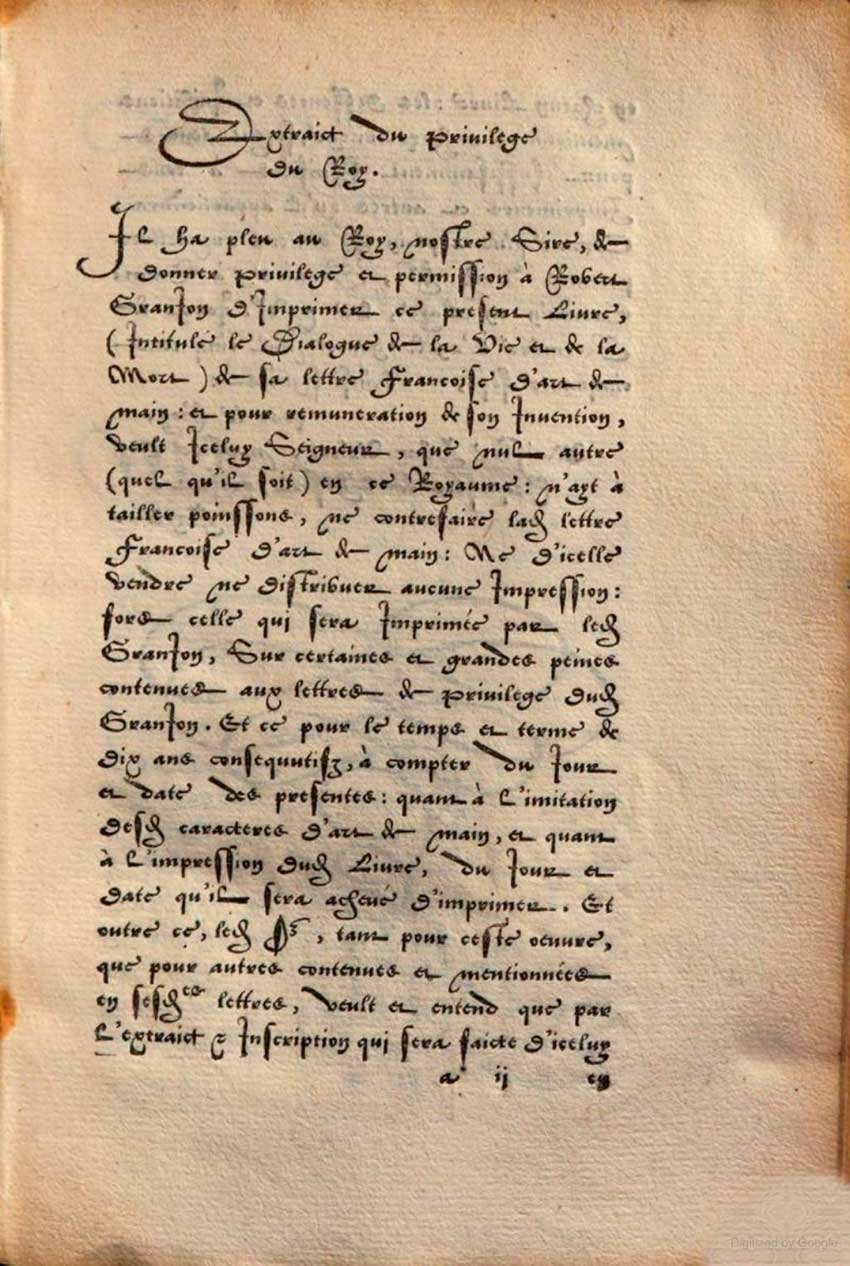 Extraict du Privilege
du Roy.
Il ha pleu au Roy, nostre Sire, de
donner privilege et permission à Robert
GranJon d'Imprimer ce present Livre,
(Intitulé le Dialogue de la Vie et de la
Mort) de sa lettre Francoise d'art de
main: et pour remuneration de son Invention,
veult Iceluy Seigneur, que nul autre
(quel qu'il soit) en ce Royaume: n'ayt à
tailler poinssons, ne contrefaire lad lettre
Francoise d'art de main: Ne d'icelle
vendre ne distribuer aucune Impression:
fors celle qui sera Imprimée par led
GranJon, Sur certaines et grandes peines
contenues aux lettres de privilege dud
GranJon. Et ce pour le temps et terme de
dix ans consequutifz, à compter du Jour
et date des presentes: quant à l'imitation
desd caracteres d'art de main, et quant
à l'impression dud Livre, du Jour et
date qu'il sera achevé d'imprimer. Et
outre ce, led Sr, tant pour ceste oeuvre,
que pour autres contenues et mentionnées
en sesdces lettres, veult et entend que par
l'extraict & Inscription qui sera faicte d'iceluy
a ij en
Digitized by Google